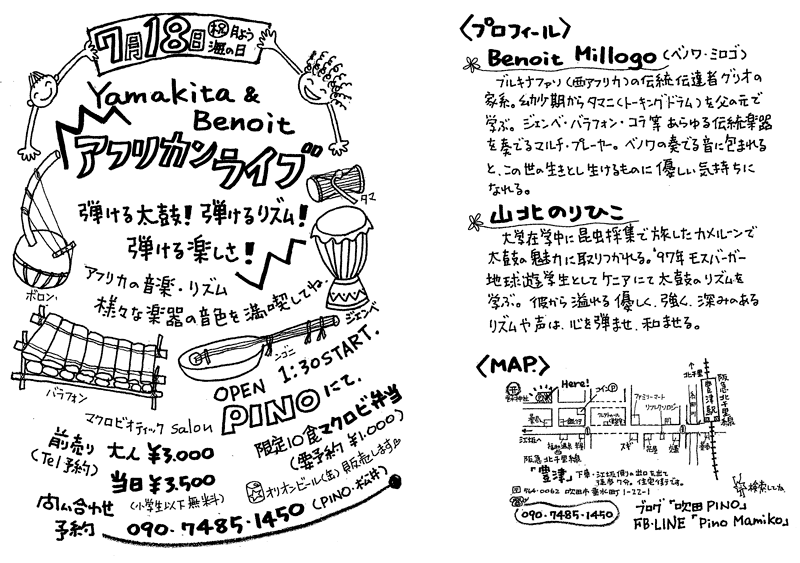 7月18日 ㊗月よう 海の日
Yamakita &
Benoit
アフリカンライブ
タマ
弾ける太鼓！弾けるリズム！
弾ける楽しさ！
ボロン
アフリカの音楽・リズム
様々な楽器の音色を満喫してね。
ジェンベ
ンゴニ
バラフォン
OPEN 1:30 START.
マクロビオティック salon PINOにて。
前売り 大人 ¥3.000
(Tel予約)
当日 ¥3.500
(小学生以下無料)
限定10食マクロビ弁当
(要予約 ¥1.000)
オリオンビール(缶)販売します
問い合わせ
予約 090-7485-1450 (PINO・松井)
〈プロフィール〉
Benoit Millogo (ベノワ・ミロゴ)
ブルキナファソ(西アフリカ)の伝統伝達者グリオの
家系。幼少期からタマニ(トーキングドラム)を父の元で
学ぶ。ジェンベ・バラフォン・コラ等あらゆる伝統楽器
を奏でるマルチ・プレーヤー。ベノワの奏でる音に包まれる
と、この世の生きとし生けるものに優しい気持ちに
なれる。
山北のりひこ
大学在学中に昆虫採集で旅したカメルーンで
太鼓の魅力に取りつかれる。'97年モスバーガー
地球遊学生としてケニアにて太鼓のリズムを
学ぶ。彼から溢れる優しく、強く、深みのある
リズムや声は、心を弾ませ、和ませる。
〈MAP〉
Here!
コインⓅ
ファミリーマート
↑北千里
阪急北千里線
豊津駅
江坂へ
阪急北千里線
「豊津」下車・江坂側の出口を出て
徒歩7分。住宅街です。
〒564-0062 吹田市垂水町1-22-1
090-7485-1450
検索してね
ブログ「吹田PINO」
FB・LINE「Pino Mamiko」